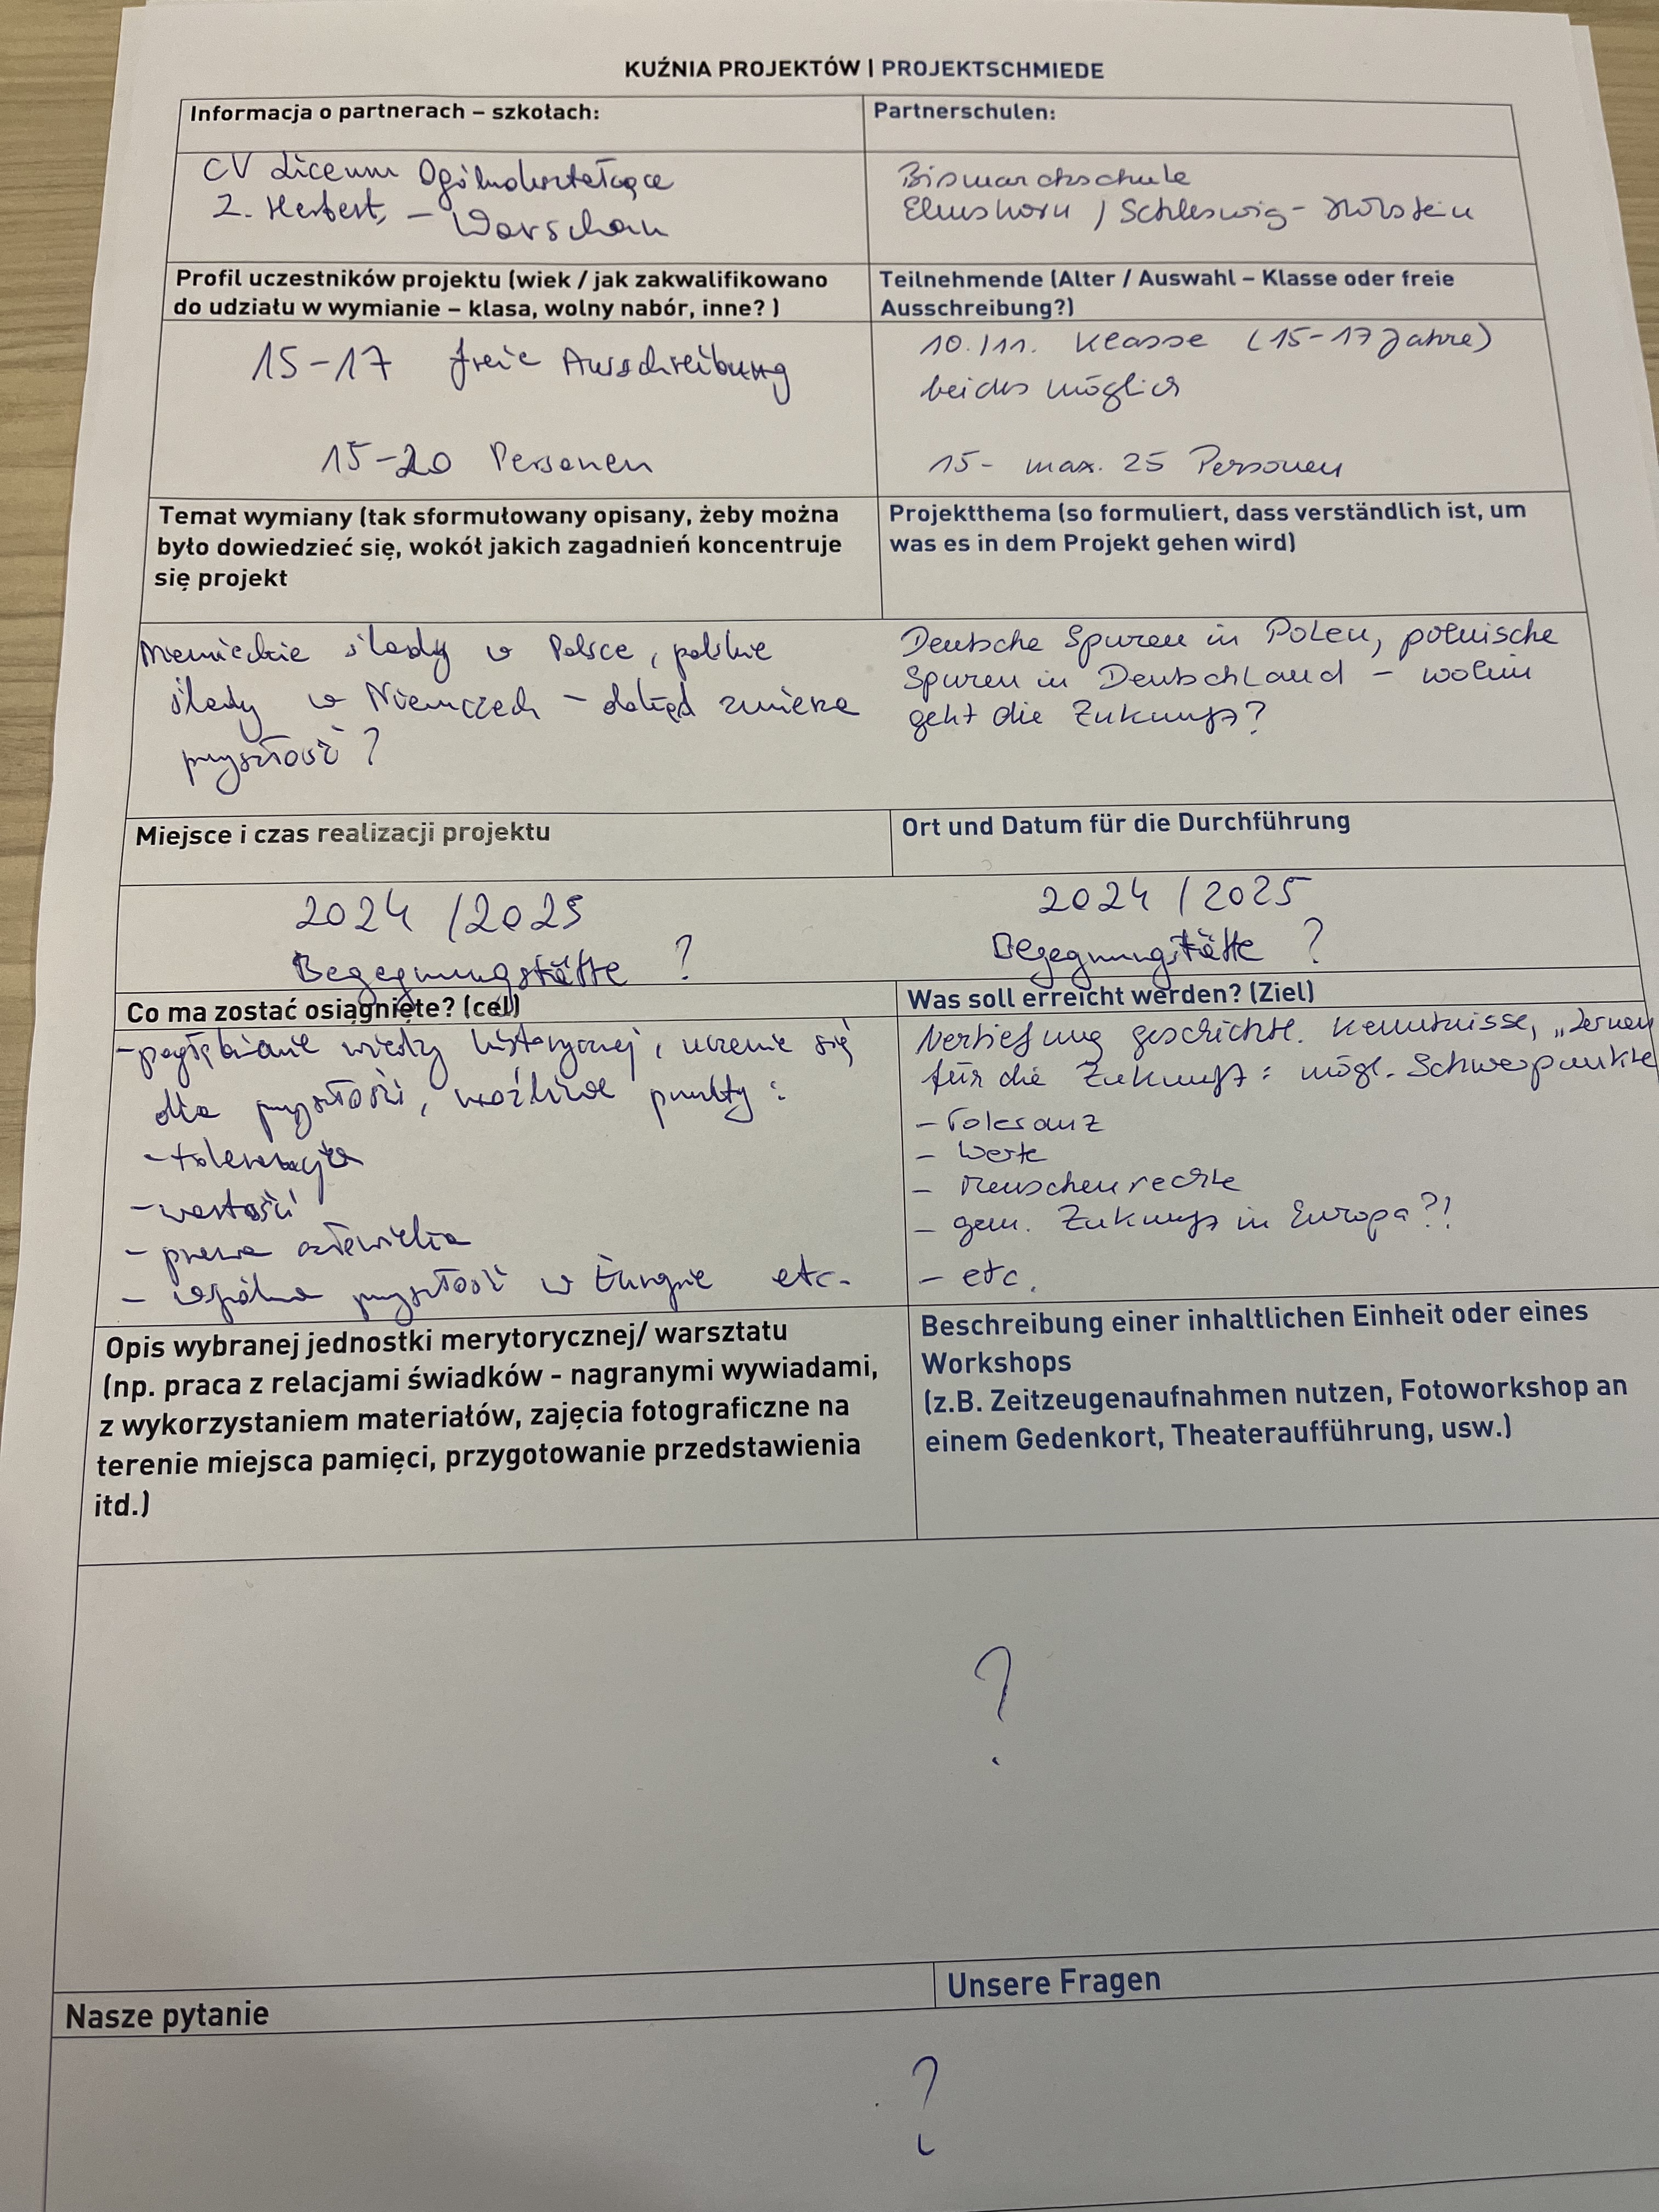 KUŹNIA PROJEKTÓW | PROJEKTSCHMIEDE
Informacja o partnerach – szkołach:
Partnerschulen:
CV Liceum Ogólnokształcące
Z. Herbert, – Warschau
Bismarckschule
Elmshorn / Schleswig-Holstein
Profil uczestników projektu (wiek / jak zakwalifikowano
do udziału w wymianie – klasa, wolny nabór, inne? )
Teilnehmende (Alter / Auswahl – Klasse oder freie
Ausschreibung?)
15-17 freie Ausschreibung
15-20 Personen
10./11. Klasse (15-17 Jahre)
beides möglich
15- max. 25 Personen
Temat wymiany (tak sformułowany opisany, żeby można
było dowiedzieć się, wokół jakich zagadnień koncentruje
się projekt
Projektthema (so formuliert, dass verständlich ist, um
was es in dem Projekt gehen wird)
Niemieckie ślady w Polsce, polskie
ślady w Niemczech – dokąd zmierza
przyszłość?
Deutsche Spuren in Polen, polnische
Spuren in Deutschland – wohin
geht die Zukunft?
Miejsce i czas realizacji projektu
Ort und Datum für die Durchführung
2024 /2025
Begegnungstätte ?
2024 / 2025
Begegnungstätte ?
Co ma zostać osiągnięte? (cel)
Was soll erreicht werden? (Ziel)
-pogłębianie wiedzy historycznej, uczenie się
dla przyszłości, możliwe punkty:
-tolerancja
-wartości
- prawa człowieka
- wspólna przyszłość w Europie etc.
Vertiefung geschichtl. Kenntnisse, „Lernen
für die Zukunft: mögl. Schwerpunkte
- Toleranz
- Werte
- Menschenrechte
- gem. Zukunft in Europa?!
- etc.
Opis wybranej jednostki merytorycznej/ warsztatu
(np. praca z relacjami świadków - nagranymi wywiadami,
z wykorzystaniem materiałów, zajęcia fotograficzne na
terenie miejsca pamięci, przygotowanie przedstawienia
itd.)
Beschreibung einer inhaltlichen Einheit oder eines
Workshops
(z.B. Zeitzeugenaufnahmen nutzen, Fotoworkshop an
einem Gedenkort, Theateraufführung, usw.)
?
Nasze pytanie
Unsere Fragen
?